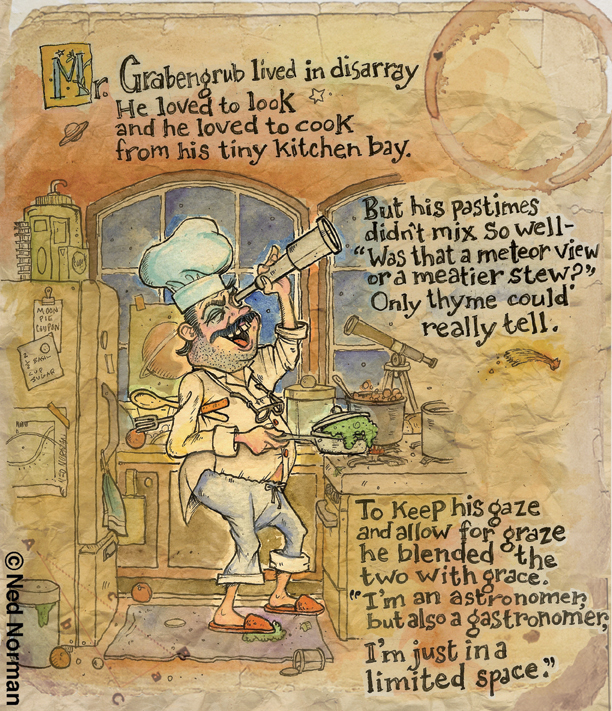 Mr. Grabengrub lived in disarray
He loved to look
and he loved to cook
from his tiny kitchen bay.
But his pastimes
didn't mix so well-
"Was that a meteor view
or a meatier stew?"
Only thyme could
really tell.
MOON
PIE
COUPON
SUGAR
To keep his gaze
and allow for graze
he blended the
two with grace.
"I'm an astronomer,
but also a gastronomer,
I'm just in a
limited space."
NED NORMAN
© Ned Norman